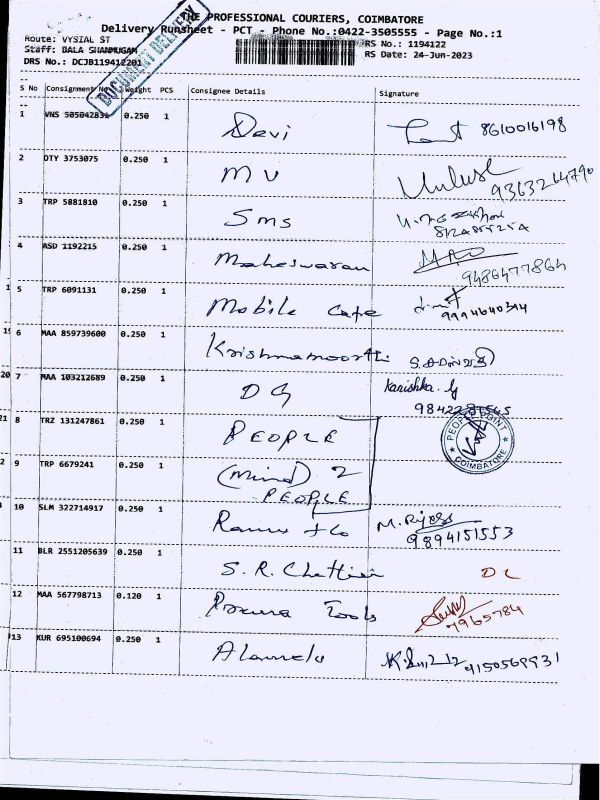 THE PROFESSIONAL COURIERS, COIMBATORE
Delivery Runsheet - PCT - Phone No.:0422-3505555 - Page No.:1
Route: VYSIAL ST
RS No.: 1194122
Staff: BALA SHANMUGAM
RS Date: 24-Jun-2023
DRS No.: DCJB119412201
DOCUMENT DELIVERY
S No Consignment No Weight PCS Consignee Details Signature
1 VNS 505042831 0.250 1 Devi 8610016198
2 DTY 3753075 0.250 1 MV
9363264790
3 TRP 5881810 0.250 1 Sms
4 ASD 1192215 0.250 1 Maheswaran
9486477864
5 TRP 6091131 0.250 1 Mobile Cafe
9994640344
6 MAA 859739600 0.250 1 Krishnamoorthi
7 MAA 103212689 0.250 1 DG Kanishka. G
8 TRZ 131247861 0.250 1 PEOPLE
PEOPLE POINT
COIMBATORE
9 TRP 6679241 0.250 1 (Mind) 2
PEOPLE
10 SLM 322714917 0.250 1 Ramu + Co M.
9894151553
11 BLR 2551205639 0.250 1 S. R. Chettiar DC
12 MAA 567798713 0.120 1 Tools
7965784
13 KUR 695100694 0.250 1 Alamelu 9150569931